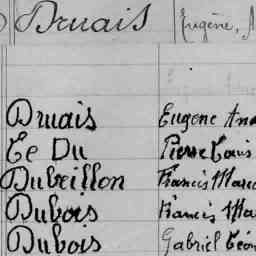 Druais Eugène, A
Druais Eugene And
Le Du Pierre Louis
Dubeillon Francis Marc
Dubois Francis Ma
Dubois Gabriel Léon